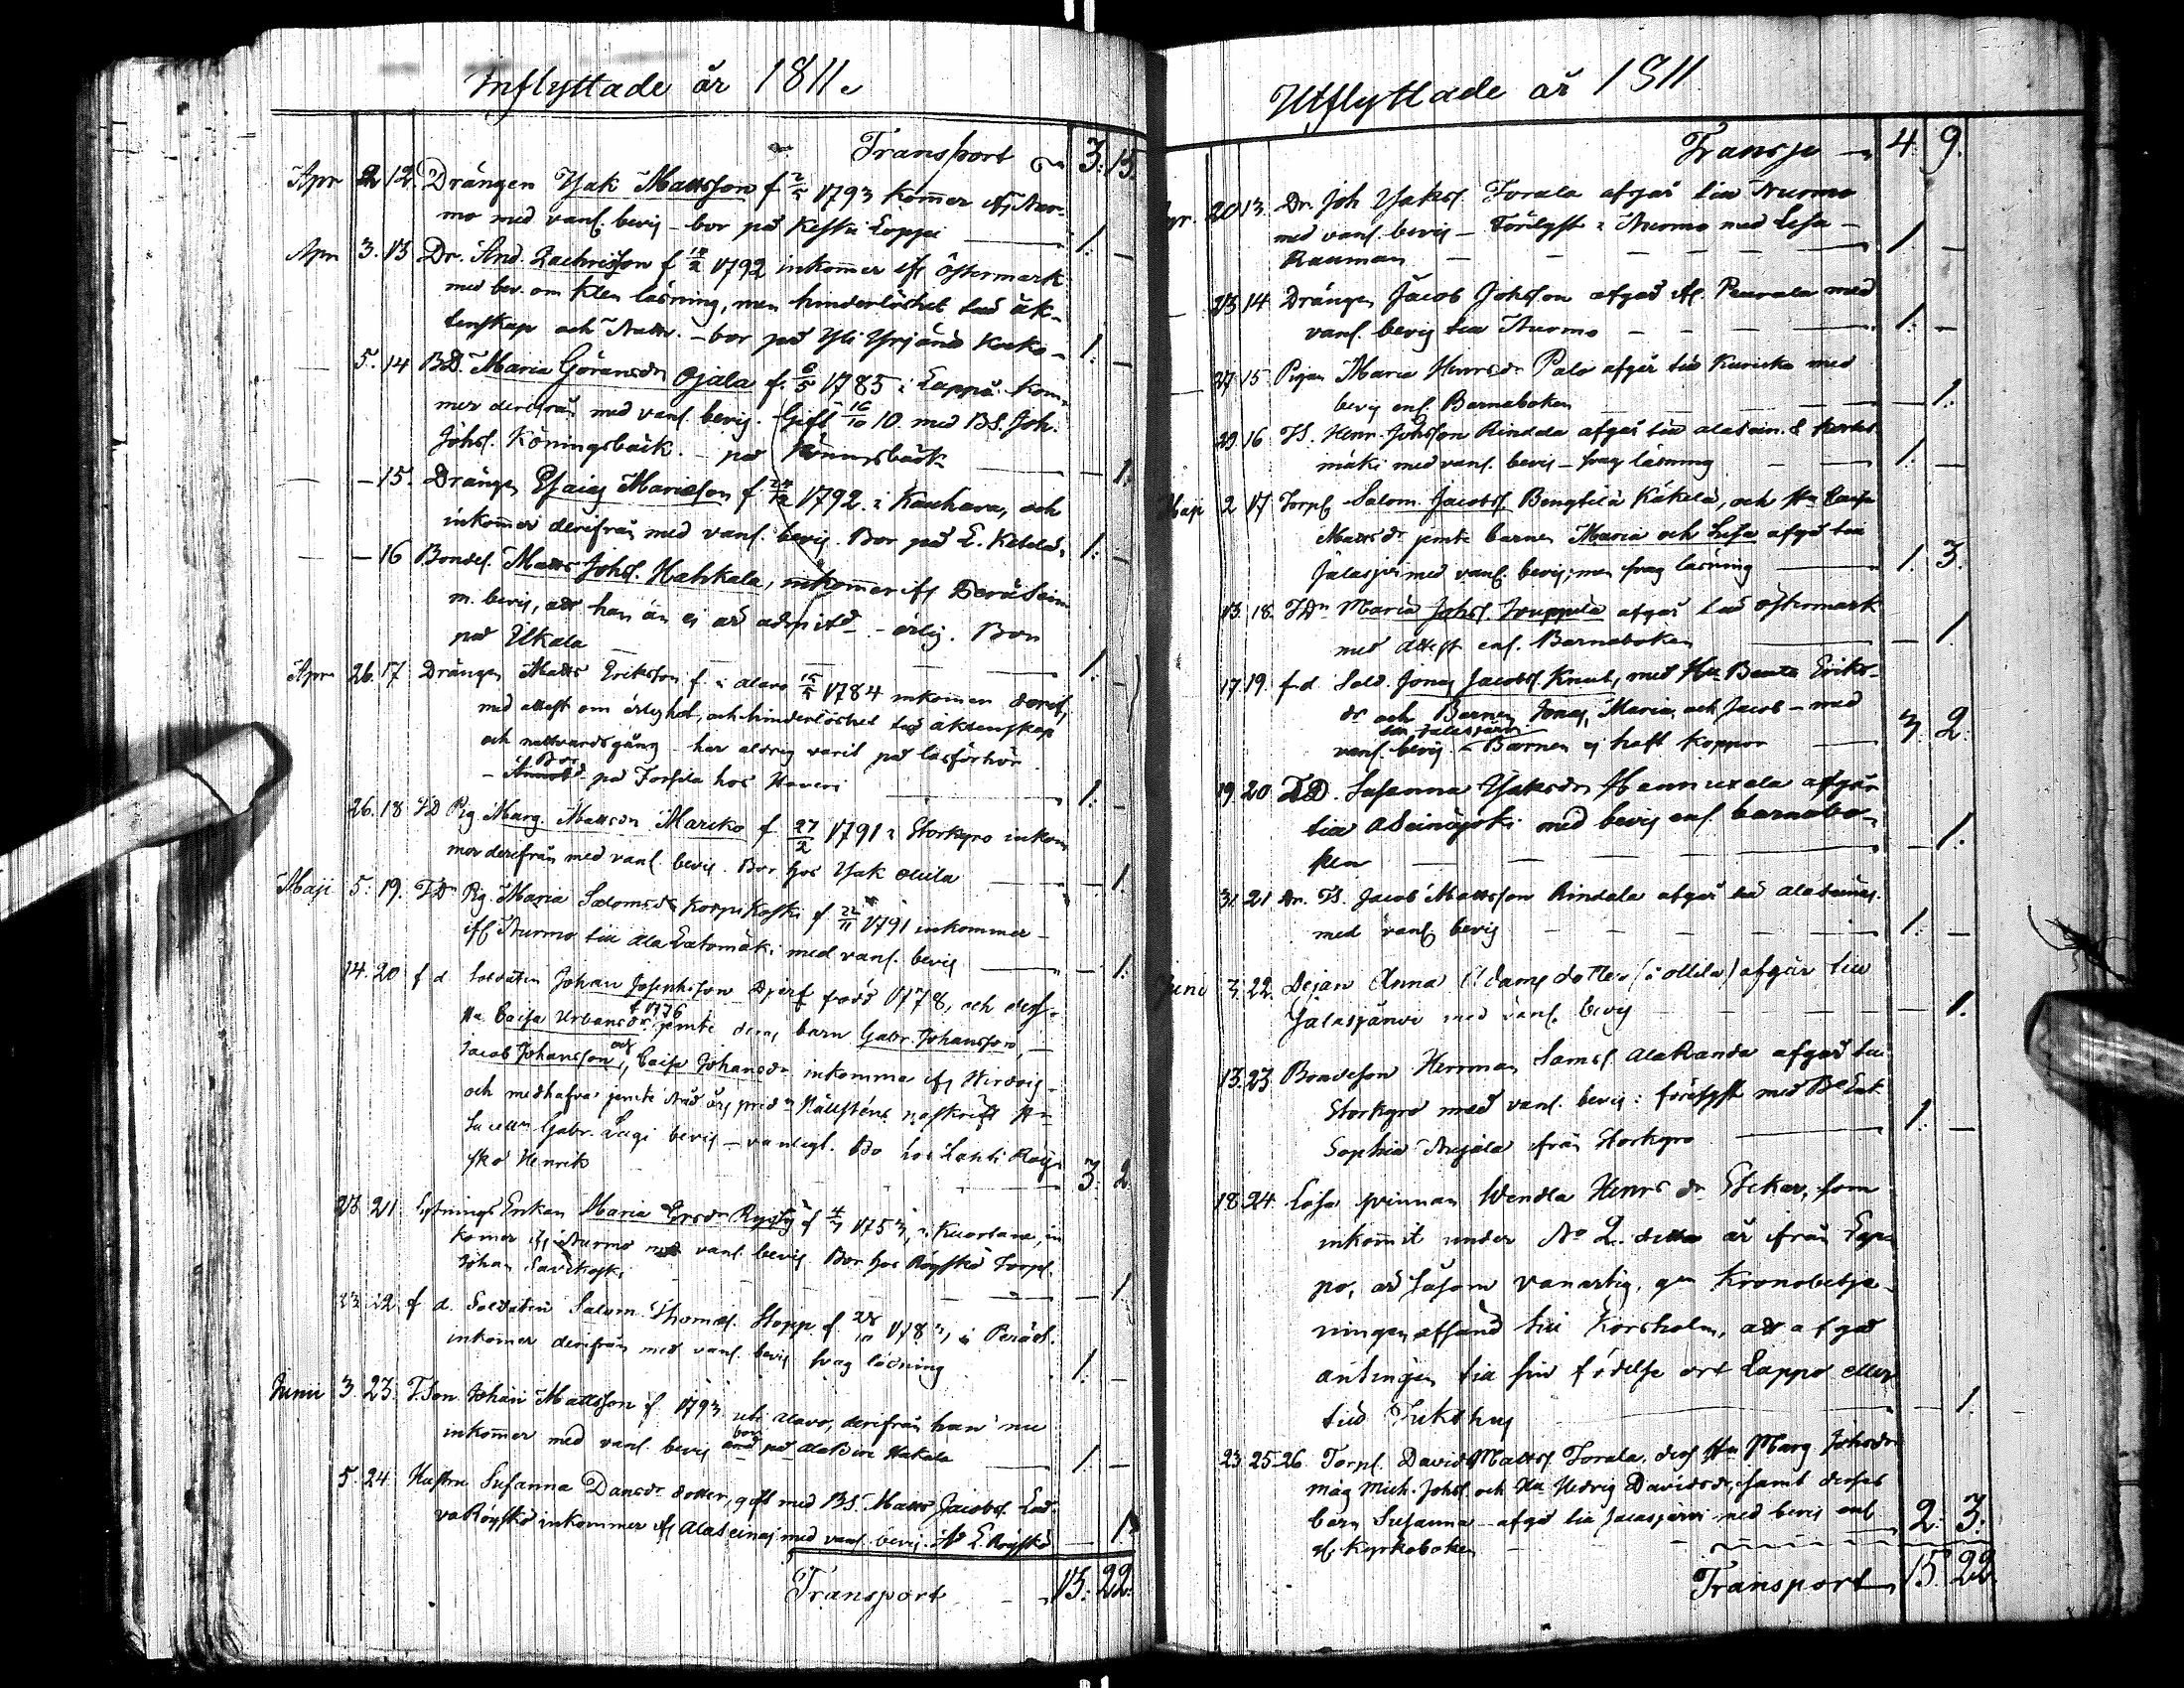 Inflyttade år 1811.
Transport 3. 15.
Apr 2 12. Drängen Isak Mattsson f 2/5 1793 kommer ifr Nur-
mo med vanl. bevis - bor på Loppi 1. -
Apr 3. 13 Dr. And. Zachrisson f 18/2 1792 inkommer ifr Östermark
med bev. om klen läsning, men hinderlöshet till äk-
tenskap och Nattv. - bor på Yli Yrjänä 1. -
5. 14 BD. Maria Göransdr Ojala f. 6/5 1785 i Lappå. Kom-
mer derifrån med vanl. bevis. Gift 16/10 10. med BS. Joh.
Johss. Köningsbäck. - på Köningsbäck - 1.
- 15. Drängen Esaias Mariæson f. 1792 i Kauhava, och
inkommer derifrån med vanl. bevis. Bor på L. Ketola. 1. -
- 16 Bondes. Matts Johss. Hahkala, inkommer ifr
m. bevis, att han än ej är admitt. - ärlig. Bor
på Ukala 1. -
Apr 26. 17 Drängen Matts Eriksson f i Alavo 15/5 1784 inkommer derif.
med attest om ärlighet, och hinderlöshet till äktenskap
och nattvardsgång - har aldrig varit på läsförhör.
Bor
- på Jorpila hos 1. -
26. 18 TD Pig Marg. Mattsdr Marcko f 27/2 1791 i Storkyro inkom-
mer derifrån med vanl. bevis. Bor hos Isak Ollila - 1.
Maji 5. 19. TDr Pig. Maria Salomsdr Korpikoski f 22/11 1791 inkommer
ifr Nurmo till Ala med vanl. bevis - 1.
14. 20 f d Soldaten Johan Josephsson Djerf född 1778, och dess
Ha Caisa Urbansdr f 1776 jemte deras barn Gabr. Johansson,
Jacob Johansson, och Caisa Johansdr inkomma ifr Wirdois
och medhafva jemte
Gabr. Lagi bevis - vanligt. Bo hos Lahti Röys-
skö Henrik 3. 2
23. 21 Maria Ersdr f 4/7 1753, i Kuortane, in
komer ifr Nurmo med vanl. bevis Bor hos Röyskö Torpl.
Johan Savikoski - 1
23. 22 f d. Soldaten Salom. Thomæs. Stopp f. i Peräs.
inkommer derifrån med vanl. bevis svag läsning 1. -
Junii 3. 23. TSon Johan Mattsson f. 1793 uti Alavo, derifrån han nu
inkommer med vanl. bevis bor på Hakala 1. -
5. 24 Hustru Susanna Dansdr dotter, gift med BS. Matts Jacobss.
Röyskö inkommer ifr Alaseinäj med vanl. bevis. L. Röyskö - 1.
Transport 13. 22.
Utflyttade år 1811
Transp 4. 9.
Apr. 20 13. Dr. Joh Isakss. Jorala afgår till Nurmo
med vanl. bevis - Förlyst i Nurmo med Lisa
Rauman 1 -
23 14 Drängen Jacob Johsson afgår ifr. Peurala med
vanl. bevis till Nurmo 1. -
27 15 Pigan Maria Henrsdr Palo afgår till Kauricka med
bevis enl. Barnaboken - 1.
29. 16 TS. Henr. Johsson Rindala afgår till Alasein.
mäki med vanl. bevis - svag läsning 1. -
Maji 2 17 Torpl Salom. Jacobss Bengtilä Käkelä, och Ha Caisa
Mattsdr jemte barnen Maria och Lisa afgå till
Jalasjvi med vanl. bevis; men svag läsning 1. 3.
13. 18. TDr Maria Johss. Jouppila afgår till Östermark
med attest enl. Barnaboken - 1
17 19. f.d. Sold. Jonas Jacobss. Knut, med Ha Beata Eriks-
dr och Barnen Jonas, Maria och Jacob - med
till Jalasjärvi
vanl. bevis. - Barnen ej haft Koppor 3 2.
19. 20 TD. Susanna Isaksdr Hannuxela afgår
till ASeinäjoki med bevis enl. barnabo-
ken - 1.
31 21 Dr. TS. Jacob Mattsson Rindala afgår till Alaseinäj.
med vanl. bevis 1. -
Juni 3. 22. Dejan Anna Adams dotter (i Ollila) afgår till
Jalasjärvi med vanl. bevis - 1.
13. 23 Bondeson Herman Samss. AlaRanda afgår till
Storkyro med vanl. bevis: förlyst med
Sophia Anjala ifrån Storkyro 1. -
18. 24. Lösa qvinnan Wendla Henrs dr Esckar, som
inkommit under No 2. detta år ifrån
po, är såsom vanartig, gm Kronobetje-
ningen afsänd till Korsholm, att afgå
antingen till sin födelse ort Lappo eller
till Tukthus - 1.
23. 25-26 Torpl. David Mattss Jorala, dess Ha Marg Johsdr
måg Mich. Johss. och Ha Hedvig Davidsdr, samt deras
barn Susanna - afgå till Jalasjärvi med bevis enl
Kyrkoboken 2. 3.
Transport 15 22.